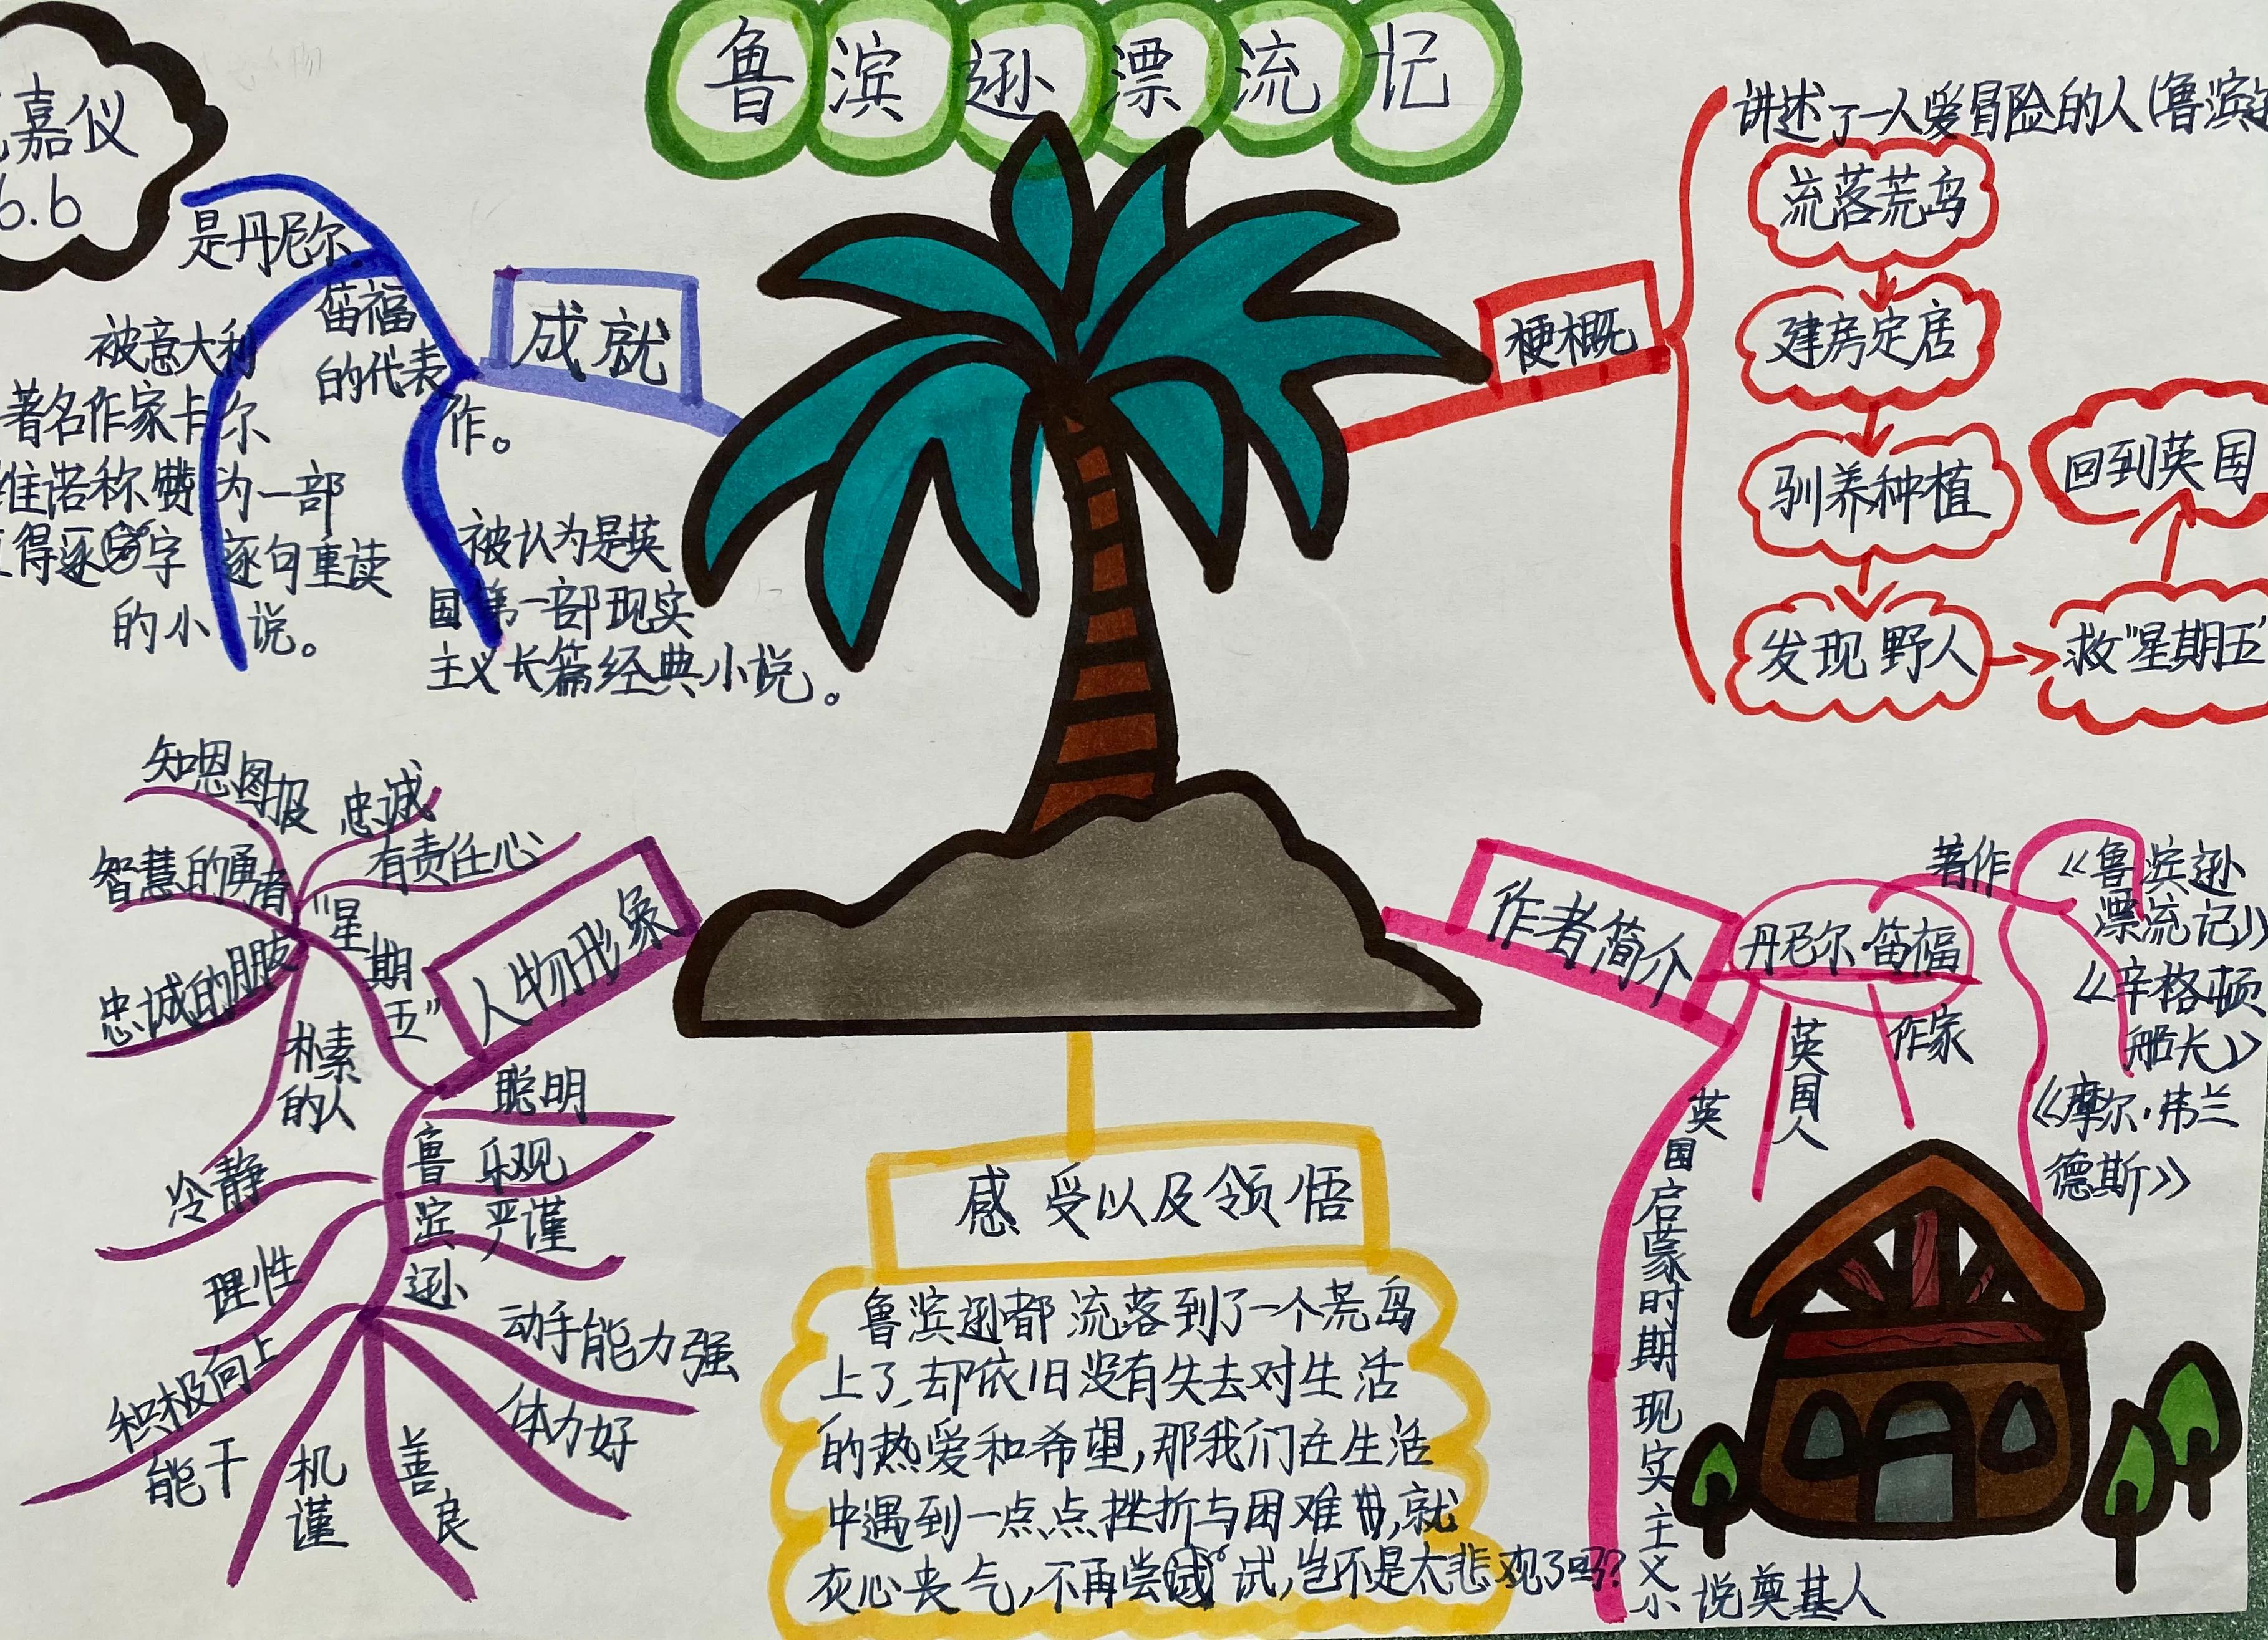 鲁滨逊漂流记
嘉仪
6.6
成就
是丹尼尔
笛福
的代表
作。
被意大利
著名作家卡尔
维诺称赞为一部
得逐字逐句重读
的小说。
被认为是英
国第一部现实
主义长篇经典小说。
梗概
讲述了一人爱冒险的人(鲁滨逊
流落荒岛
建房定居
驯养种植
发现野人
救"星期五"
回到英国
人物形象
"星期五"
知恩图报
忠诚
有责任心
智慧的勇者
忠诚的朋友
朴素
的人
鲁滨逊
聪明
乐观
严谨
冷静
理性
积极向上
能干
机谨
善良
体力好
动手能力强
作者简介
丹尼尔·笛福
著作
《鲁滨逊
漂流记》
《辛格顿
船长》
《摩尔·弗兰
德斯》
作家
英国人
英国启蒙时期现实主义小说奠基人
感受以及领悟
鲁滨逊都流落到了一个荒岛
上了,却依旧没有失去对生活
的热爱和希望,那我们在生活
中遇到一点点挫折与困难,就
灰心丧气,不再尝试,岂不是太悲观了吗?